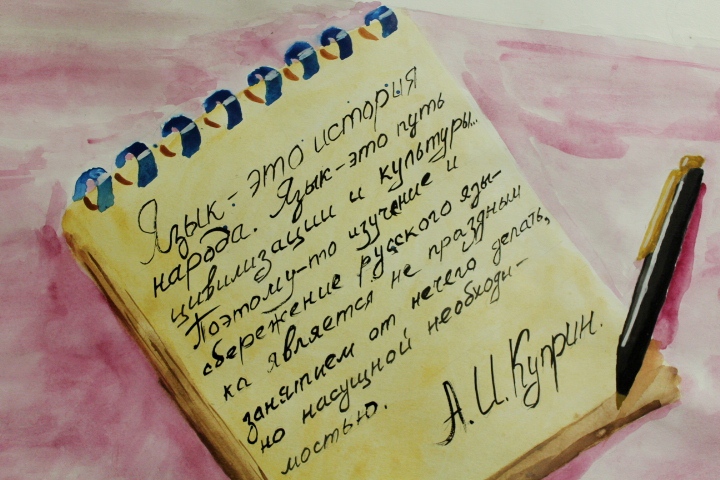 Язык - это история
народа. Язык - это путь
цивилизации и культуры...
Поэтому-то изучение и
сбережение русского язы-
ка является не праздным
занятием от нечего делать,
но насущной необходи-
мостью.
А.И.Куприн.